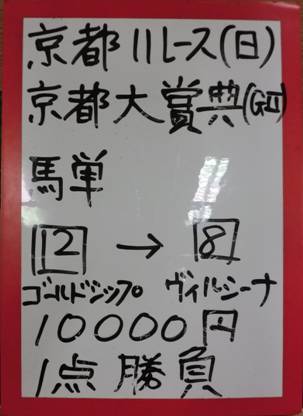 京都11レース(日)
京都大賞典(GII)
馬単
12 → 8
ゴールドシップ ヴィルシーナ
10000円
1点勝負